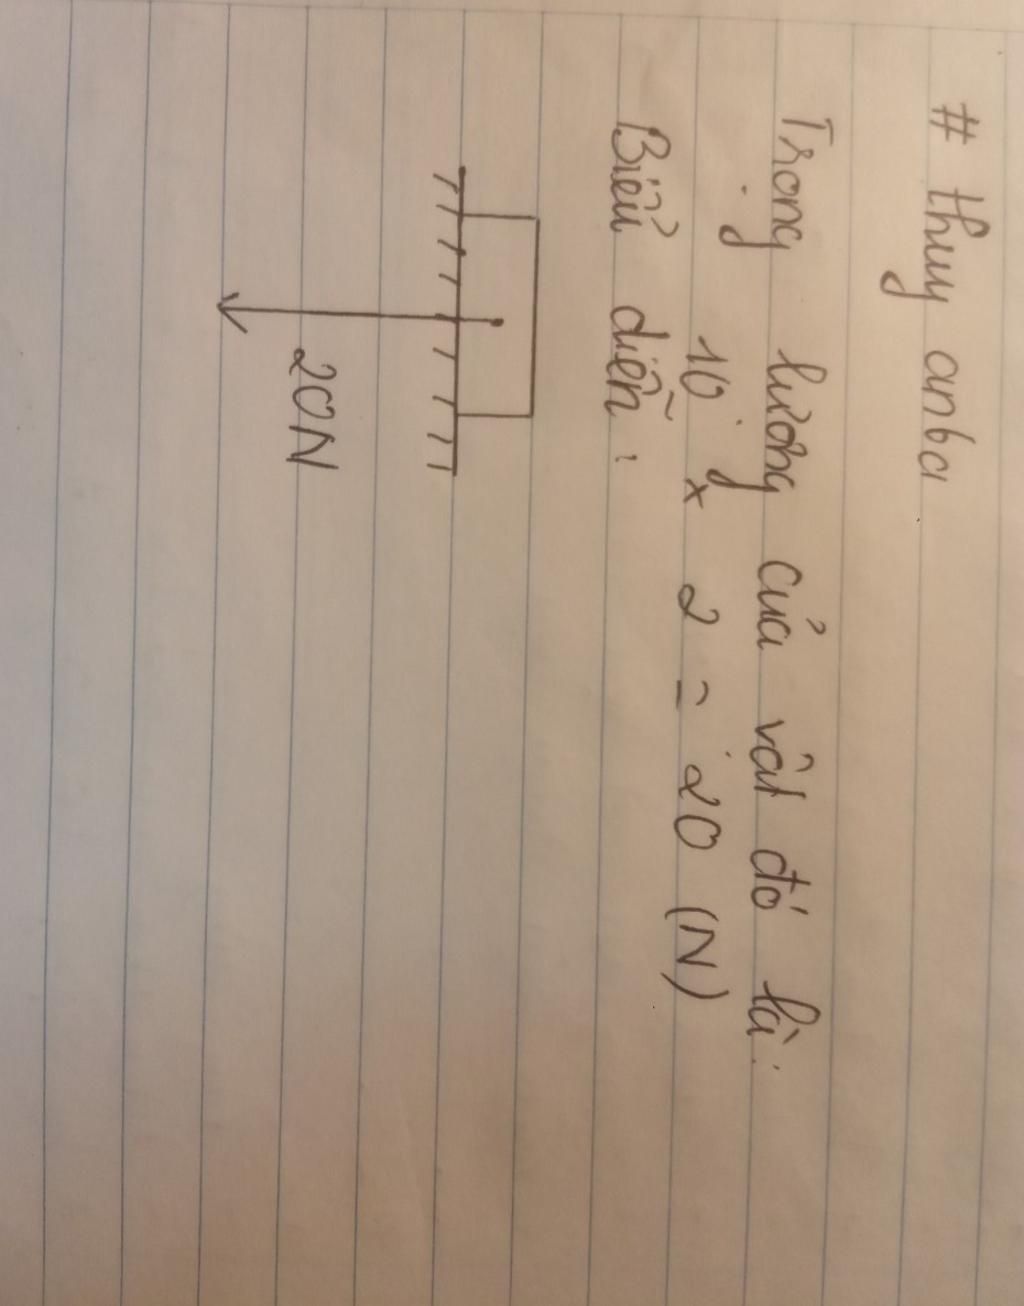 # thuy anba
Trọng lượng của vật đó là:
10 x 2 = 20 (N)
Biểu diễn:
20N